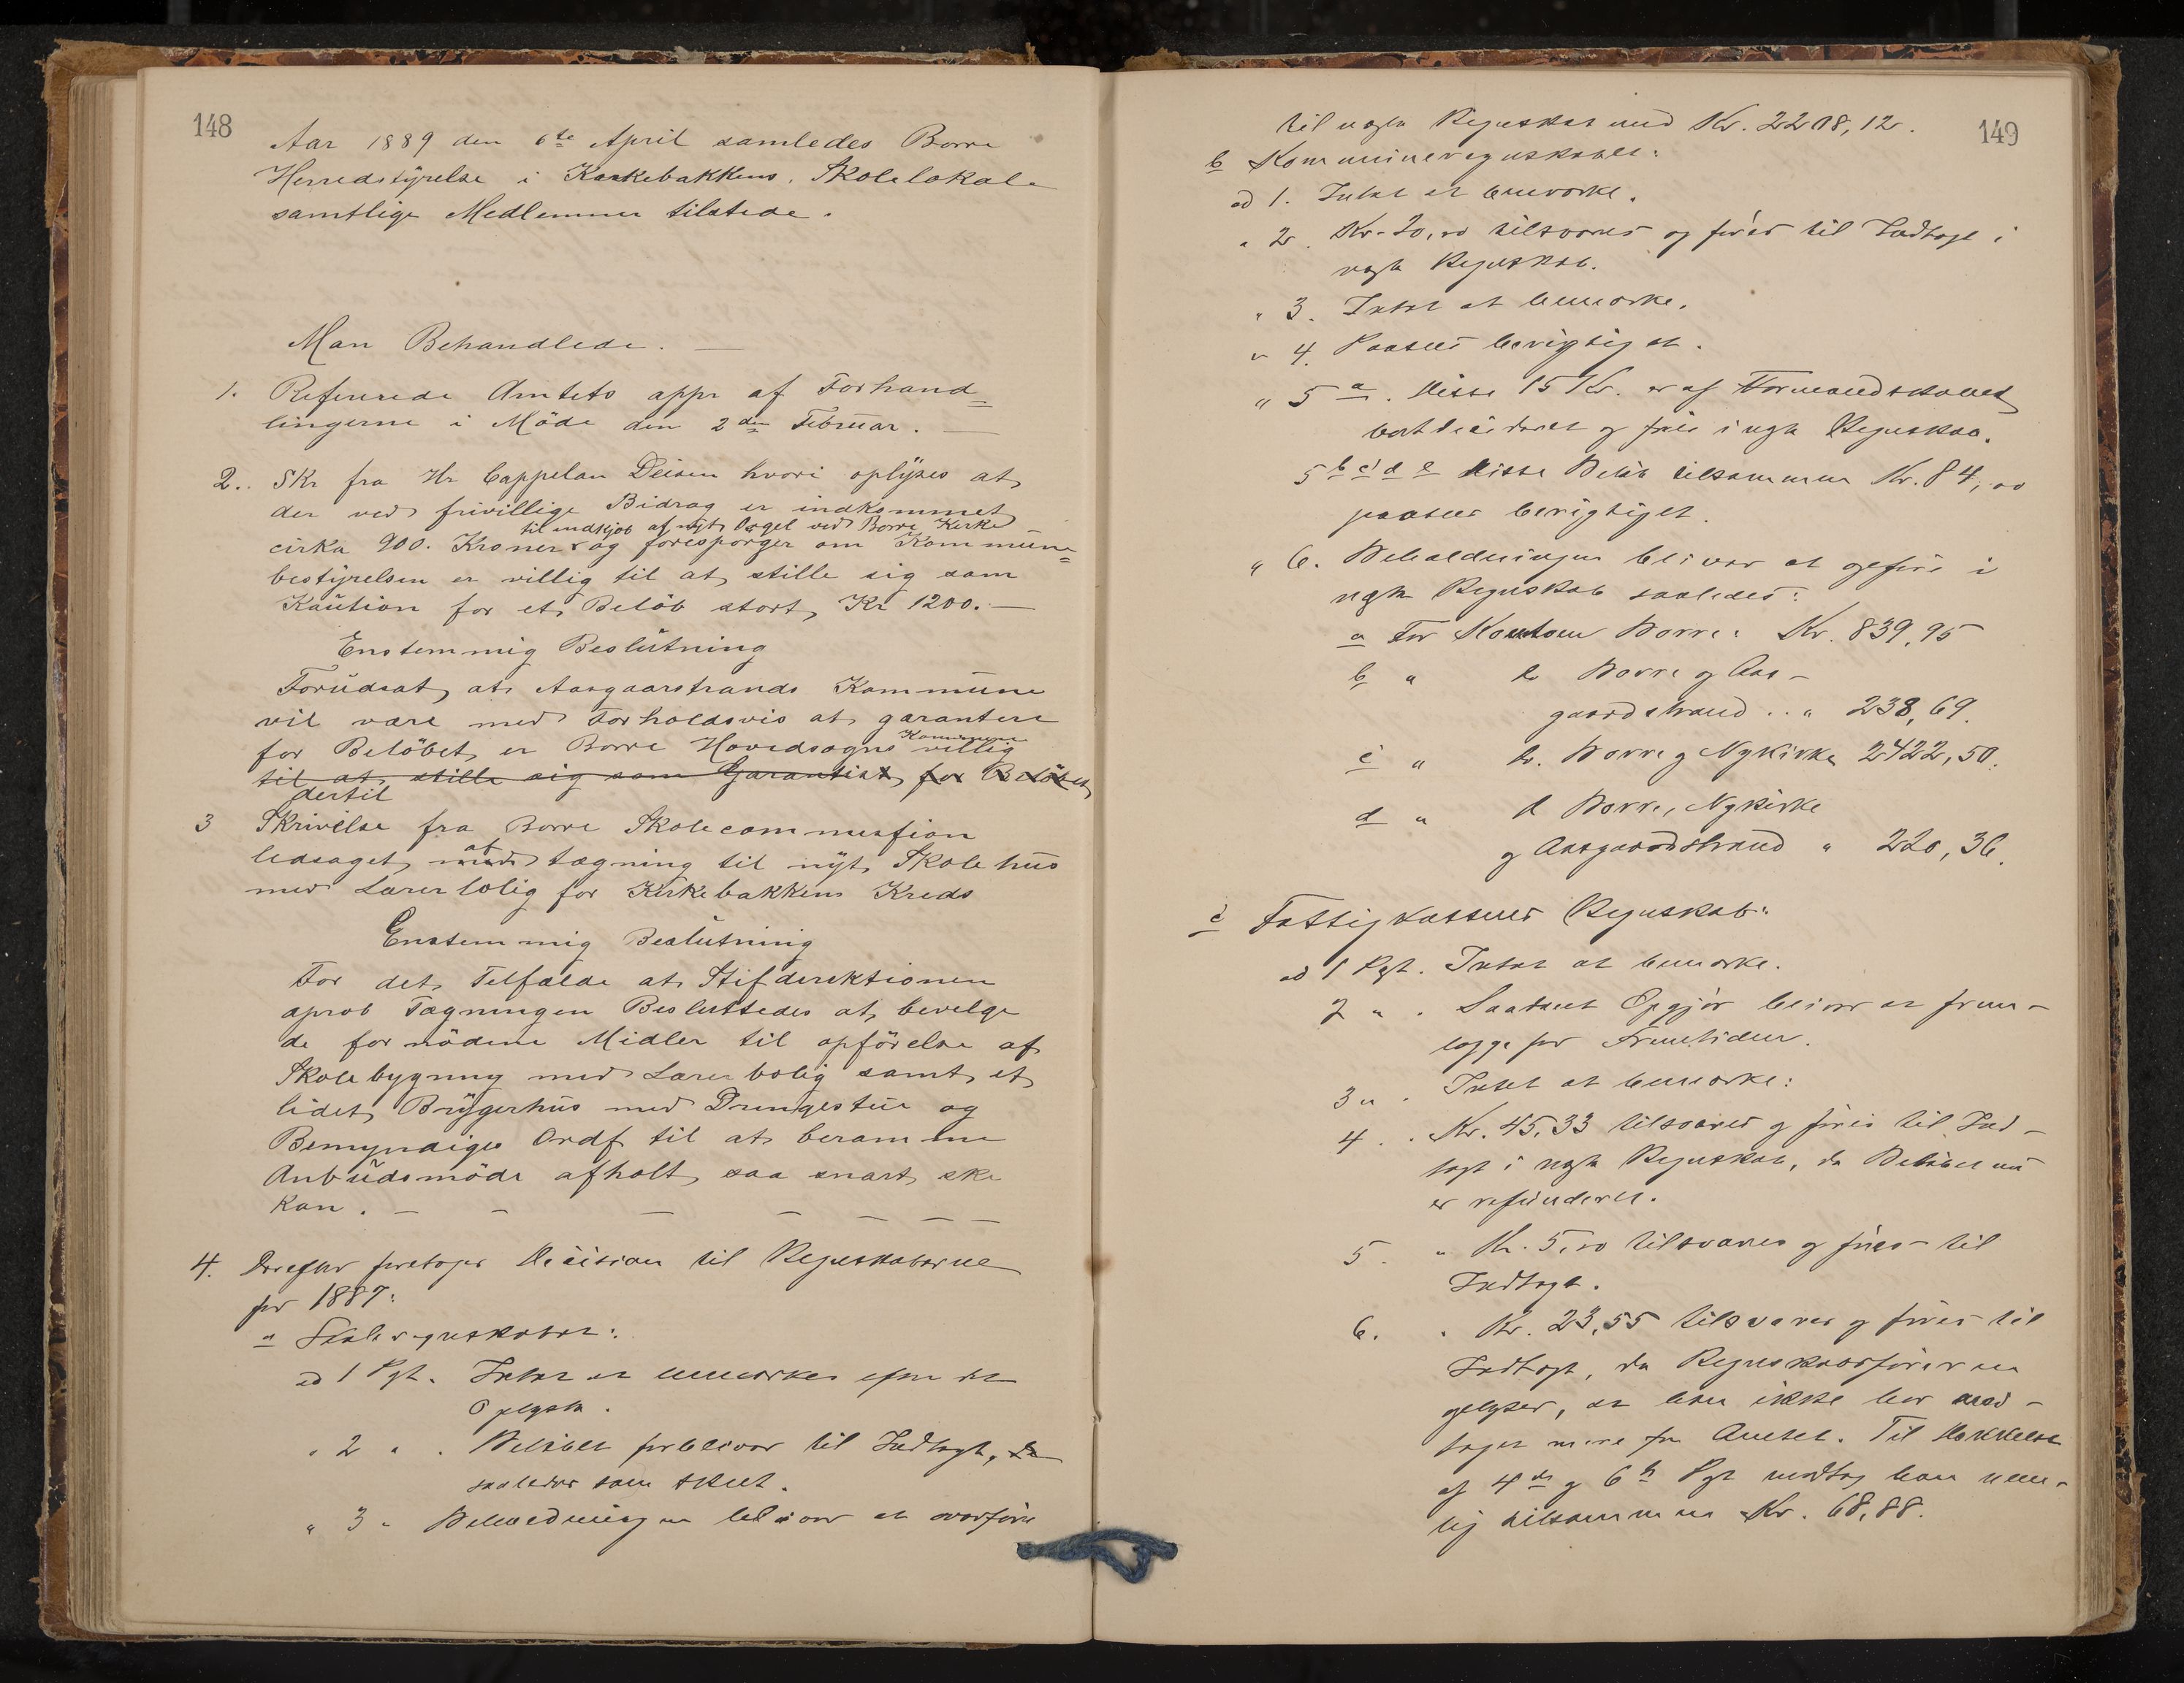 148
Aar 1889 den 6te April samledes Borre
Herredstyrelse i Kirkebakkens Skolelokale
samtlige Medlemmer tilstede.
Man Behandlede. —
1. Refererede Amtets appr af Forhand=
lingerne i Möde den 2den Februar. —
2. Skr fra Hr Cappelan Deisen hvori oplyses at
der ved frivillige Bidrag er indkommet
til indkjöb af nyt Orgel ved Borre Kirke
cirka 900. Kroner og forespörger om Kommune=
bestyrelsen er villig til at stille sig som
Kaution for et Belöb stort Kr 1200. —
Enstemmig Beslutning
Forudsat at Aasgaarstrands Kommune
vil være med Forholdsvis at garantere
Kommune
for Belöbet er Borre Hovedsogns villig
til at stille sig som Garantist for Belöbet
dertil
3 Skrivelse fra Borre Skolecommission
ledsaget med af tægning til nyt Skolehus
med Lærerbolig for Kirkebakkens Kreds
Enstemmig Beslutning
For det Telfælde at Stifdirektionen
aprob Tægningen Besluttedes at bevelge
de fornödene Midler til opförelse af
Skolebygning med Lærerbolig samt et
lidet Bryggerhus med Drengestue og
Bemyndiges Ordf til at beramme
Anbudsmöde afholt saa snart ske
kan. — — — — — — —
4. Derefter foretoges Decision til Regnskaberne
for 1887:
a Skoleregnskabet:
ad 1 Pgt. Intet at bemærkes efter det
Oplyste.
" 2 " . Belöbet forbliver til Indtægt,
saaledes som skeet.
" 3 " Beholdningen bliver at overföre
149
til næste Regnskab med Kr. 2208,12.
b Kommuneregnskabet:
ad 1. Intet at bemærke.
" 2. Kr. 20,00 tilsvares og föres til Indtægt i
næste Regnskab.
" 3. Intet at bemærke.
" 4. Paasees berigtiget.
" 5 a. Disse 15 Kr. er af Formandskabet
bortdecideret og föres i næste Regnskab.
5 b c d e Disse Belöb tilsammen Kr. 84,00
paasees berigtiget.
" 6. Beholdningen bliver at opföre i
næste Regnskab saaledes:
a For Kontoen Borre: Kr. 839,95
b " do Borre og Aas-
gaardstrand .. " 238,69.
c " do. Borre og Nykirke 2422,50.
d " do Borre, Nykirke
og Aasgaardstrand " 220,36.
c Fattigkassens Regnskab:
ad 1 Pgt. Intet at bemærke.
2 " . Saadant Opgjör bliver at frem-
lægge for Fremtiden.
3 " . Intet at bemærke:
4 . . Kr. 45,33 tilsvares og föres til Ind-
tægt i næste Regnskab, da Belöbet nu
er refunderet.
5. " Kr. 5,00 tilsvares og föres til
Indtægt.
6. " Kr. 23,55 tilsvares og föres til
Indtægt, da Regnskabsföreren
oplyser, at han ikke har mod-
taget mere fra Amtet. Til Dækkelse
af 4de og 6te Pgt modtog han nem-
lig tilsammen Kr. 68,88.